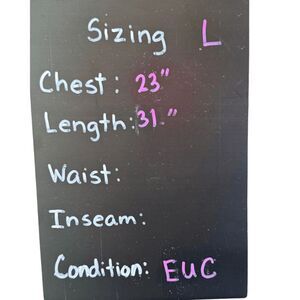 Sizing L
Chest: 23"
Length: 31"
Waist:
Inseam:
Condition: EUC